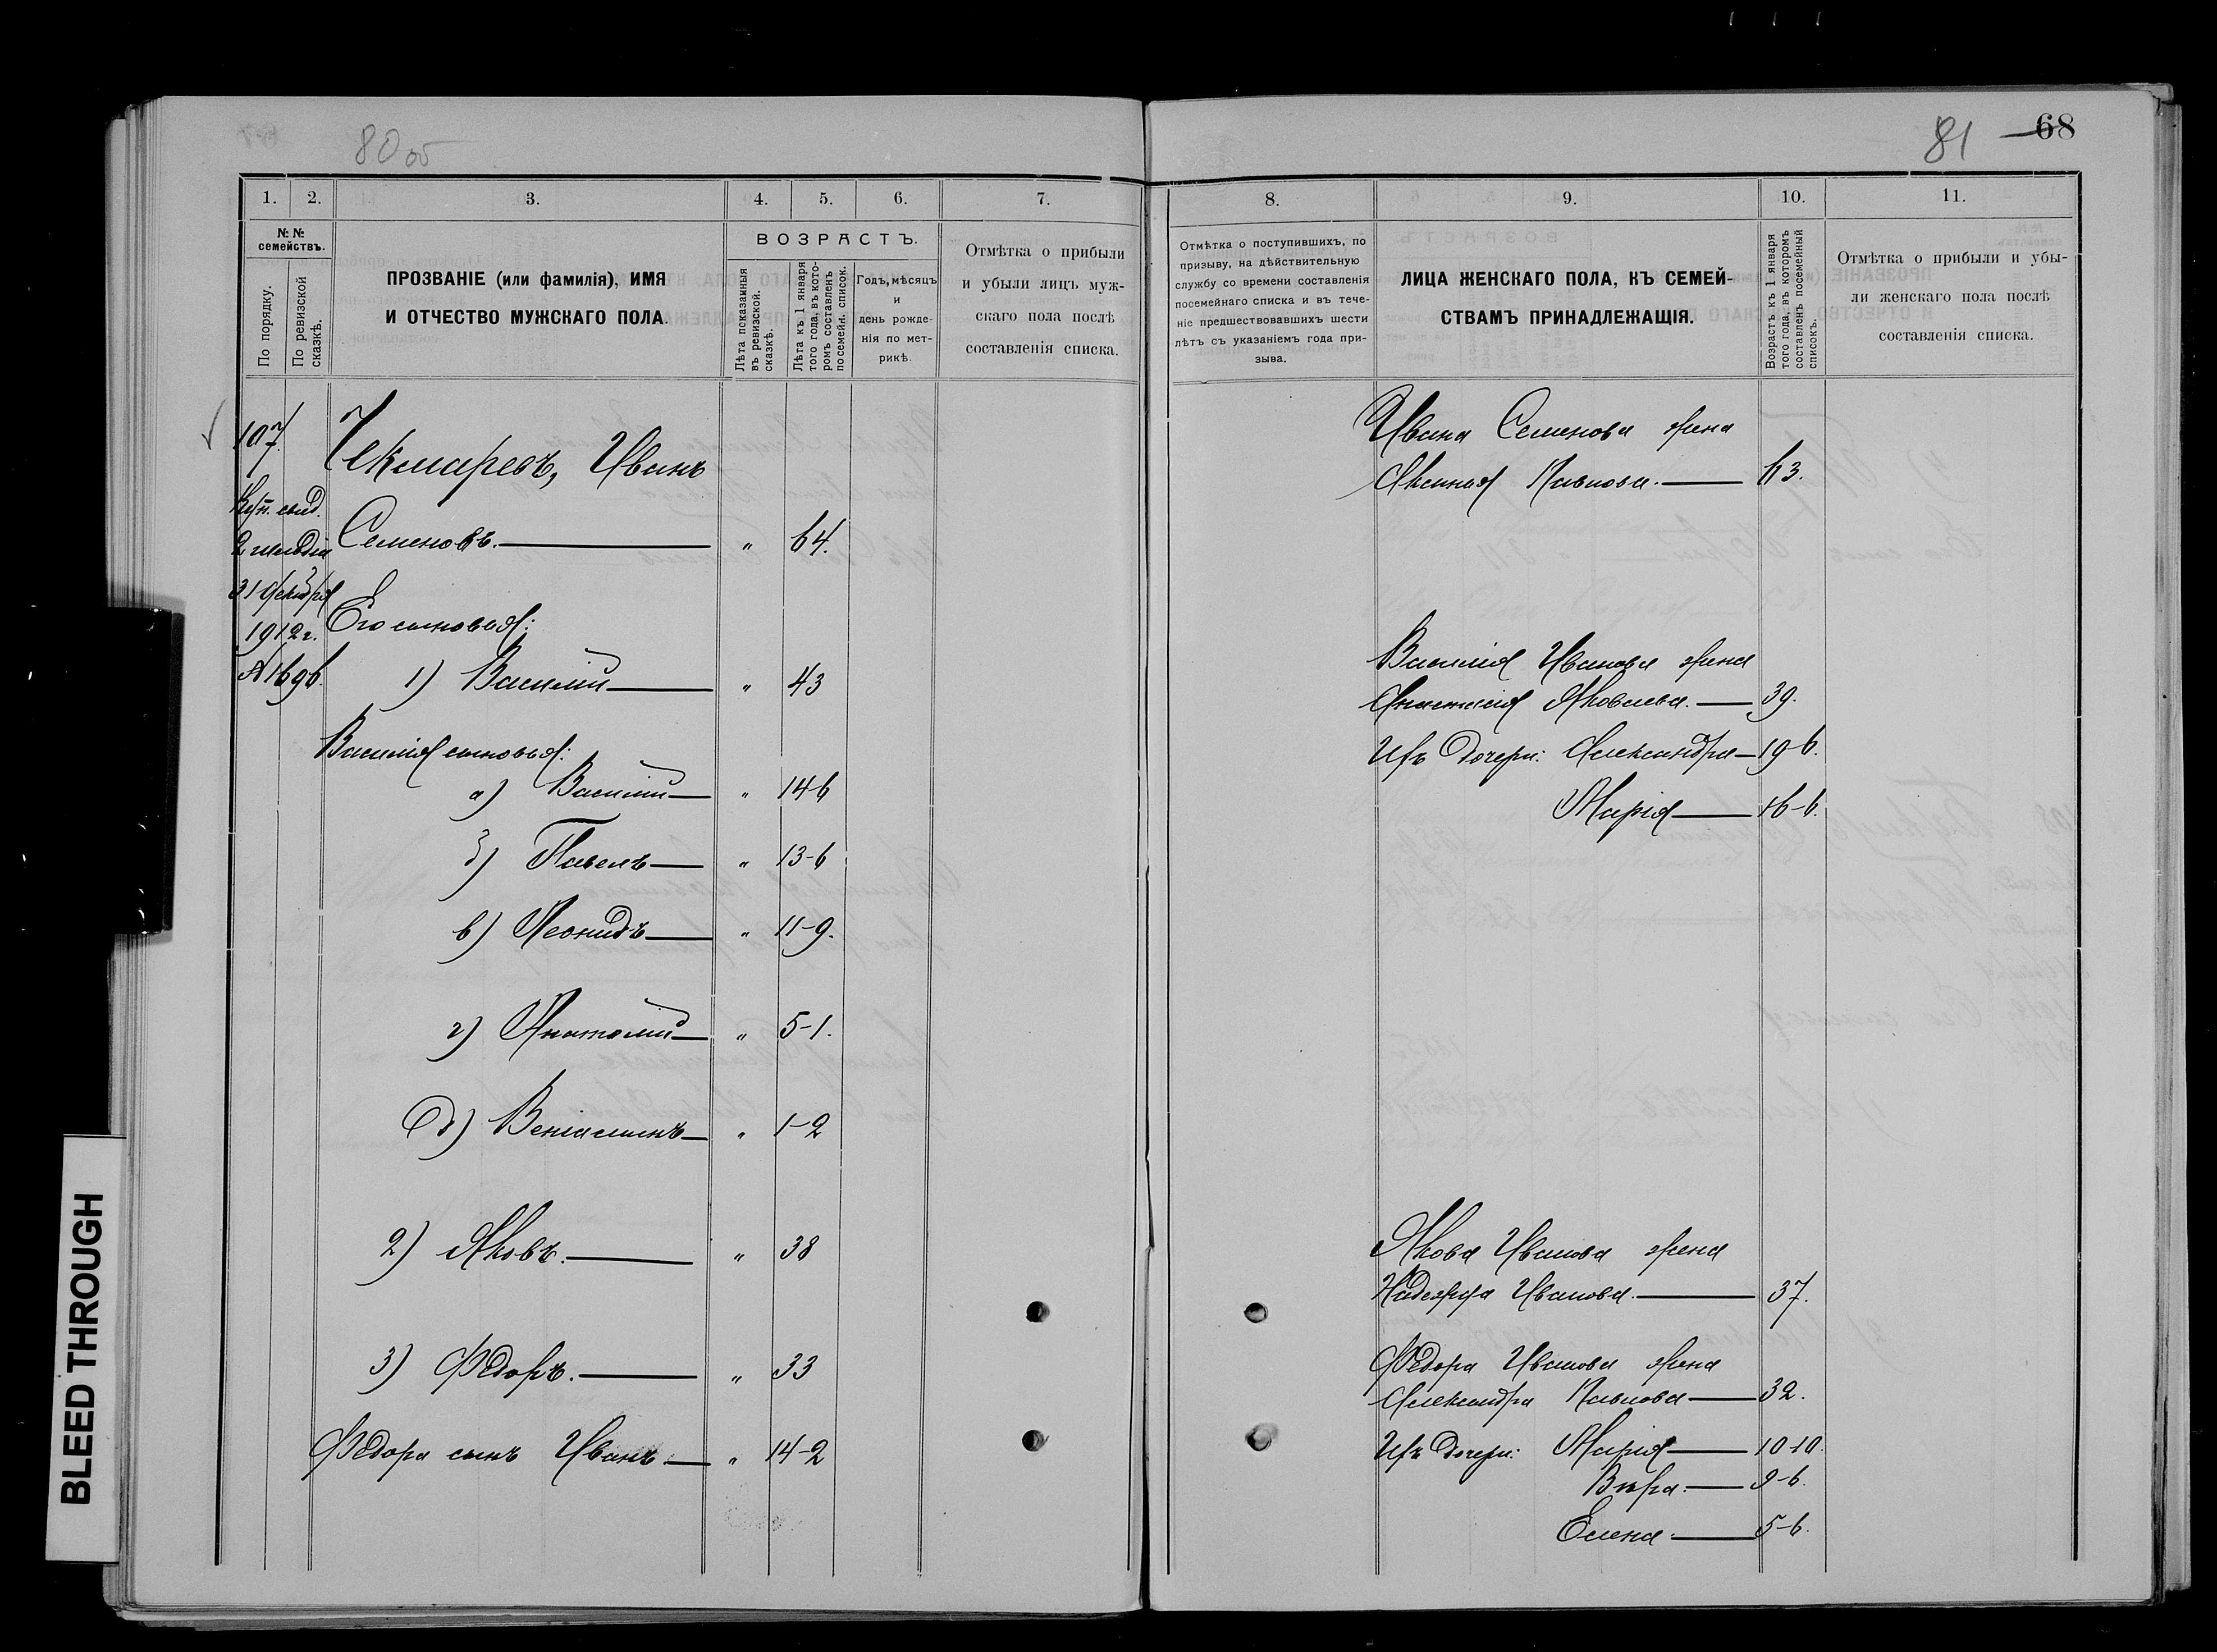 80 об
81 68
1. 2. 3. 4. 5. 6. 7.
№ № семействъ.
По порядку.
По ревизской сказкѣ.
ПРОЗВАНІЕ (или фамилія), ИМЯ
И ОТЧЕСТВО МУЖСКАГО ПОЛА.
ВОЗРАСТЪ.
Лѣта показанныя въ ревизской сказкѣ.
Лѣта къ 1 января того года, въ которомъ составленъ посемейн. список.
Годъ, мѣсяцъ
и
день рожде-
нія по мет-
рикѣ.
Отмѣтка о прибыли
и убыли лицъ муж-
скаго пола послѣ
составленія списка.
107
Чекмаревъ, Иванъ
Куп. свид.
2 гильдіи Семеновъ. — " 64.
31 декабря
1912 г. Его сыновья:
№ 1696. 1) Василій — " 43
Василія сыновья:
а) Василій — " 14-6
б) Павелъ — " 13-6
в) Леонидъ — " 11-9.
г) Анатолій — " 5-1.
д) Веніаминъ — " 1-2
2) Яковъ. — " 38
3) Ѳедоръ. — " 33
Ѳедора сынъ Иванъ — " 14-2
8. 9. 10. 11.
Отмѣтка о поступившихъ, по
призыву, на дѣйствительную
службу со времени составленія
посемейнаго списка и въ тече-
ніе предшествовавшихъ шести
лѣтъ съ указаніемъ года при-
зыва.
ЛИЦА ЖЕНСКАГО ПОЛА, КЪ СЕМЕЙ-
СТВАМЪ ПРИНАДЛЕЖАЩІЯ.
Возрастъ къ 1 января
того года, въ которомъ
составленъ посемейный
списокъ.
Отмѣтка о прибыли и убы-
ли женскаго пола послѣ
составленія списка.
Ивана Семенова жена
Аксинья Павлова. — 63.
Василія Иванова жена
Анастасія Яковлева. — 39.
Ихъ дочери: Александра — 19-6.
Марія — 16-6.
Якова Иванова жена
Надежда Иванова. — 37.
Ѳедора Иванова жена
Александра Павлова — 32.
Ихъ дочери: Марія — 10-10.
Вѣра. — 9-6.
Елена. — 5-6.
BLEED THROUGH